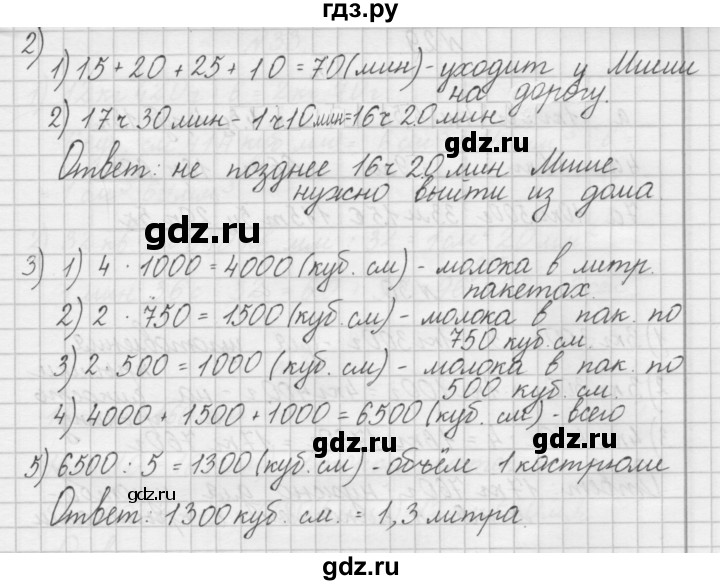 гдз.ру
2)
1) 15 + 20 + 25 + 10 = 70 (мин) - уходит у Миши
на дорогу.
2) 17ч 30мин - 1ч10мин=16ч 20мин
gdz.ru
Ответ: не позднее 16ч 20мин Мише
нужно выйти из дома.
gdz.ru
3) 1) 4 · 1000 = 4000 (куб. см) - молока в литр.
пакетах.
2) 2 · 750 = 1500 (куб. см) - молока в пак. по
750 куб. см.
gdz.ru
3) 2 · 500 = 1000 (куб. см) - молока в пак. по
500 куб. см.
4) 4000 + 1500 + 1000 = 6500 (куб. см) - всего
gdz.ru
gdz.ru
5) 6500 : 5 = 1300 (куб. см) - объём 1 кастрюли
gdz.ru
Ответ: 1300 куб. см. = 1,3 литра.
gdz.ru